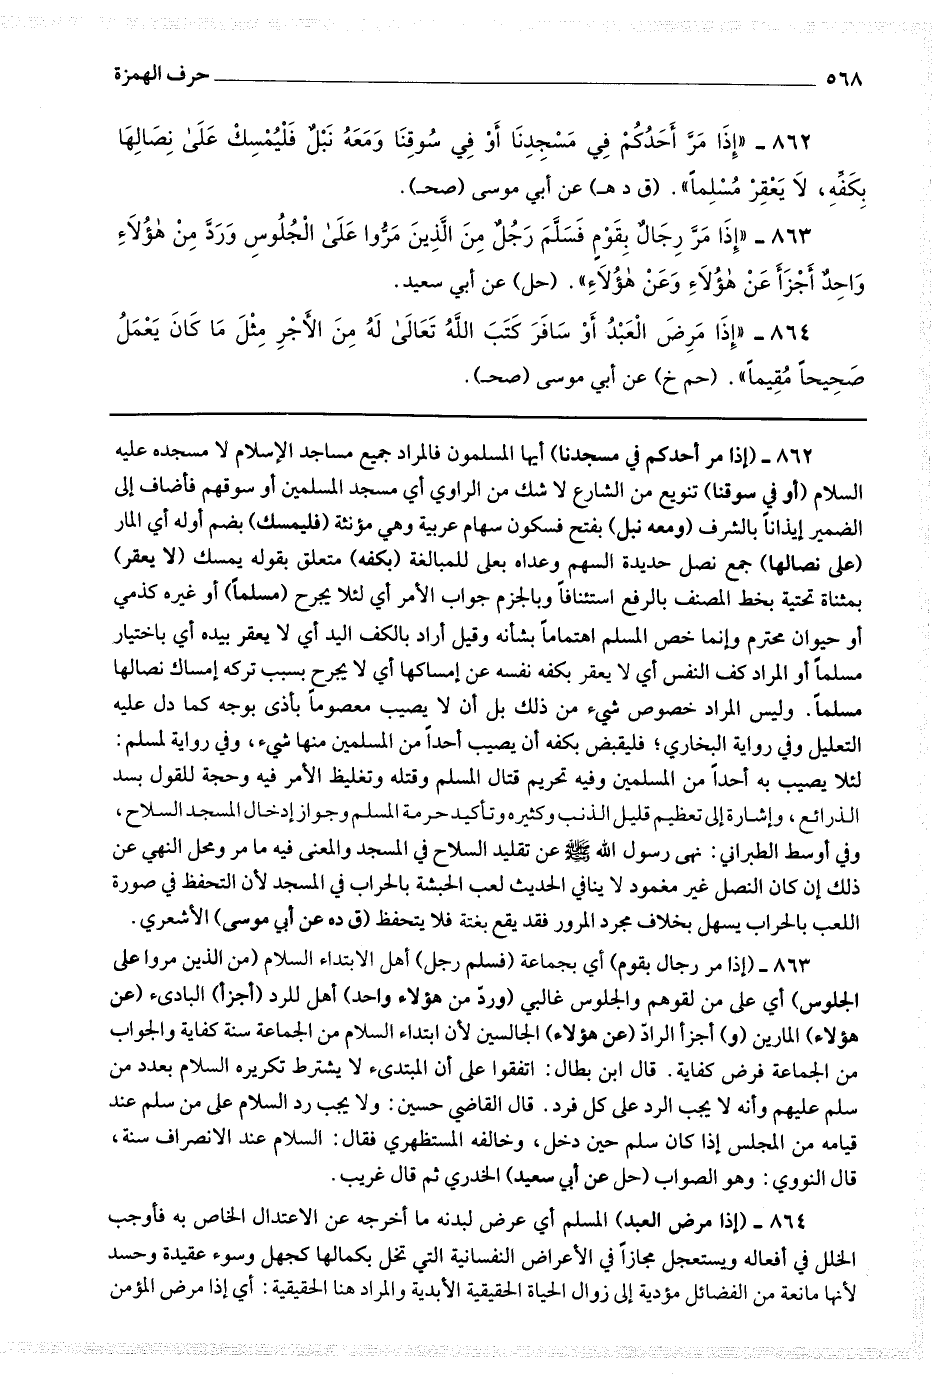 ٥٦٨ ـــــــــــــــــــــــــــــــــــــــــ حرف الهمزة
٨٦٢ ـ «إِذَا مَرَّ أَحَدُكُمْ فِي مَسْجِدِنَا أَوْ فِي سُوقِنَا وَمَعَهُ نَبْلٌ فَلْيُمْسِكْ عَلَىٰ نِصَالِهَا
بِكَفِّهِ، لَا يَعْقِرْ مُسْلِماً». (ق د هـ) عن أبي موسى (صحـ).
٨٦٣ ـ «إِذَا مَرَّ رِجَالٌ بِقَوْمٍ فَسَلَّمَ رَجُلٌ مِنَ الَّذِينَ مَرُّوا عَلَىٰ الْجُلُوسِ وَرَدَّ مِنْ هٰؤُلَاءِ
وَاحِدٌ أَجْزَأَ عَنْ هٰؤُلَاءِ وَعَنْ هٰؤُلَاءِ». (حل) عن أبي سعيد.
٨٦٤ ـ «إِذَا مَرِضَ الْعَبْدُ أَوْ سَافَرَ كَتَبَ اللَّهُ تَعَالَىٰ لَهُ مِنَ الأَجْرِ مِثْلَ مَا كَانَ يَعْمَلُ
صَحِيحاً مُقِيماً». (حم خ) عن أبي موسى (صحـ).
٨٦٢ ـ (إذا مر أحدكم في مسجدنا) أيها المسلمون فالمراد جميع مساجد الإسلام لا مسجده عليه
السلام (أو في سوقنا) تنويع من الشارع لا شك من الراوي أي مسجد المسلمين أو سوقهم فأضاف إلى
الضمير إيذاناً بالشرف (ومعه نبل) بفتح فسكون سهام عربية وهي مؤنثة (فليمسك) بضم أوله أي المار
(على نصالها) جمع نصل حديدة السهم وعداه بعلى للمبالغة (بكفه) متعلق بقوله يمسك (لا يعقر)
بمثناة تحتية بخط المصنف بالرفع استئنافاً وبالجزم جواب الأمر أي لئلا يجرح (مسلماً) أو غيره كذمي
أو حيوان محترم وإنما خص المسلم اهتماماً بشأنه وقيل أراد بالكف اليد أي لا يعقر بيده أي باختيار
مسلماً أو المراد كف النفس أي لا يعقر بكفه نفسه عن إمساكها أي لا يجرح بسبب تركه إمساك نصالها
مسلماً. وليس المراد خصوص شيء من ذلك بل أن لا يصيب معصوماً بأذى بوجه كما دل عليه
التعليل وفي رواية البخاري؛ فليقبض بكفه أن يصيب أحداً من المسلمين منها شيء، وفي رواية لمسلم:
لئلا يصيب به أحداً من المسلمين وفيه تحريم قتال المسلم وقتله وتغليظ الأمر فيه وحجة للقول بسد
الذرائع، وإشارة إلى تعظيم قليل الذنب وكثيره وتأكيد حرمة المسلم وجواز إدخال المسجد السلاح،
وفي أوسط الطبراني: نهى رسول الله ﷺ عن تقليد السلاح في المسجد والمعنى فيه ما مر ومحل النهي عن
ذلك إن كان النصل غير مغمود لا ينافي الحديث لعب الحبشة بالحراب في المسجد لأن التحفظ في صورة
اللعب بالحراب يسهل بخلاف مجرد المرور فقد يقع بغتة فلا يتحفظ (ق ده عن أبي موسى) الأشعري.
٨٦٣ ـ (إذا مر رجال بقوم) أي بجماعة (فسلم رجل) أهل الابتداء السلام (من الذين مروا على
الجلوس) أي على من لقوهم والجلوس غالبي (وردّ من هؤلاء واحد) أهل للرد (أجزأ) البادىء (عن
هؤلاء) المارين (و) أجزأ الرادّ (عن هؤلاء) الجالسين لأن ابتداء السلام من الجماعة سنة كفاية والجواب
من الجماعة فرض كفاية. قال ابن بطال: اتفقوا على أن المبتدىء لا يشترط تكريره السلام بعدد من
سلم عليهم وأنه لا يجب الرد على كل فرد. قال القاضي حسين: ولا يجب رد السلام على من سلم عند
قيامه من المجلس إذا كان سلم حين دخل، وخالفه المستظهري فقال: السلام عند الانصراف سنة،
قال النووي: وهو الصواب (حل عن أبي سعيد) الخدري ثم قال غريب.
٨٦٤ ـ (إذا مرض العبد) المسلم أي عرض لبدنه ما أخرجه عن الاعتدال الخاص به فأوجب
الخلل في أفعاله ويستعجل مجازاً في الأعراض النفسانية التي تخل بكمالها كجهل وسوء عقيدة وحسد
لأنها مانعة من الفضائل مؤدية إلى زوال الحياة الحقيقية الأبدية والمراد هنا الحقيقية: أي إذا مرض المؤمن